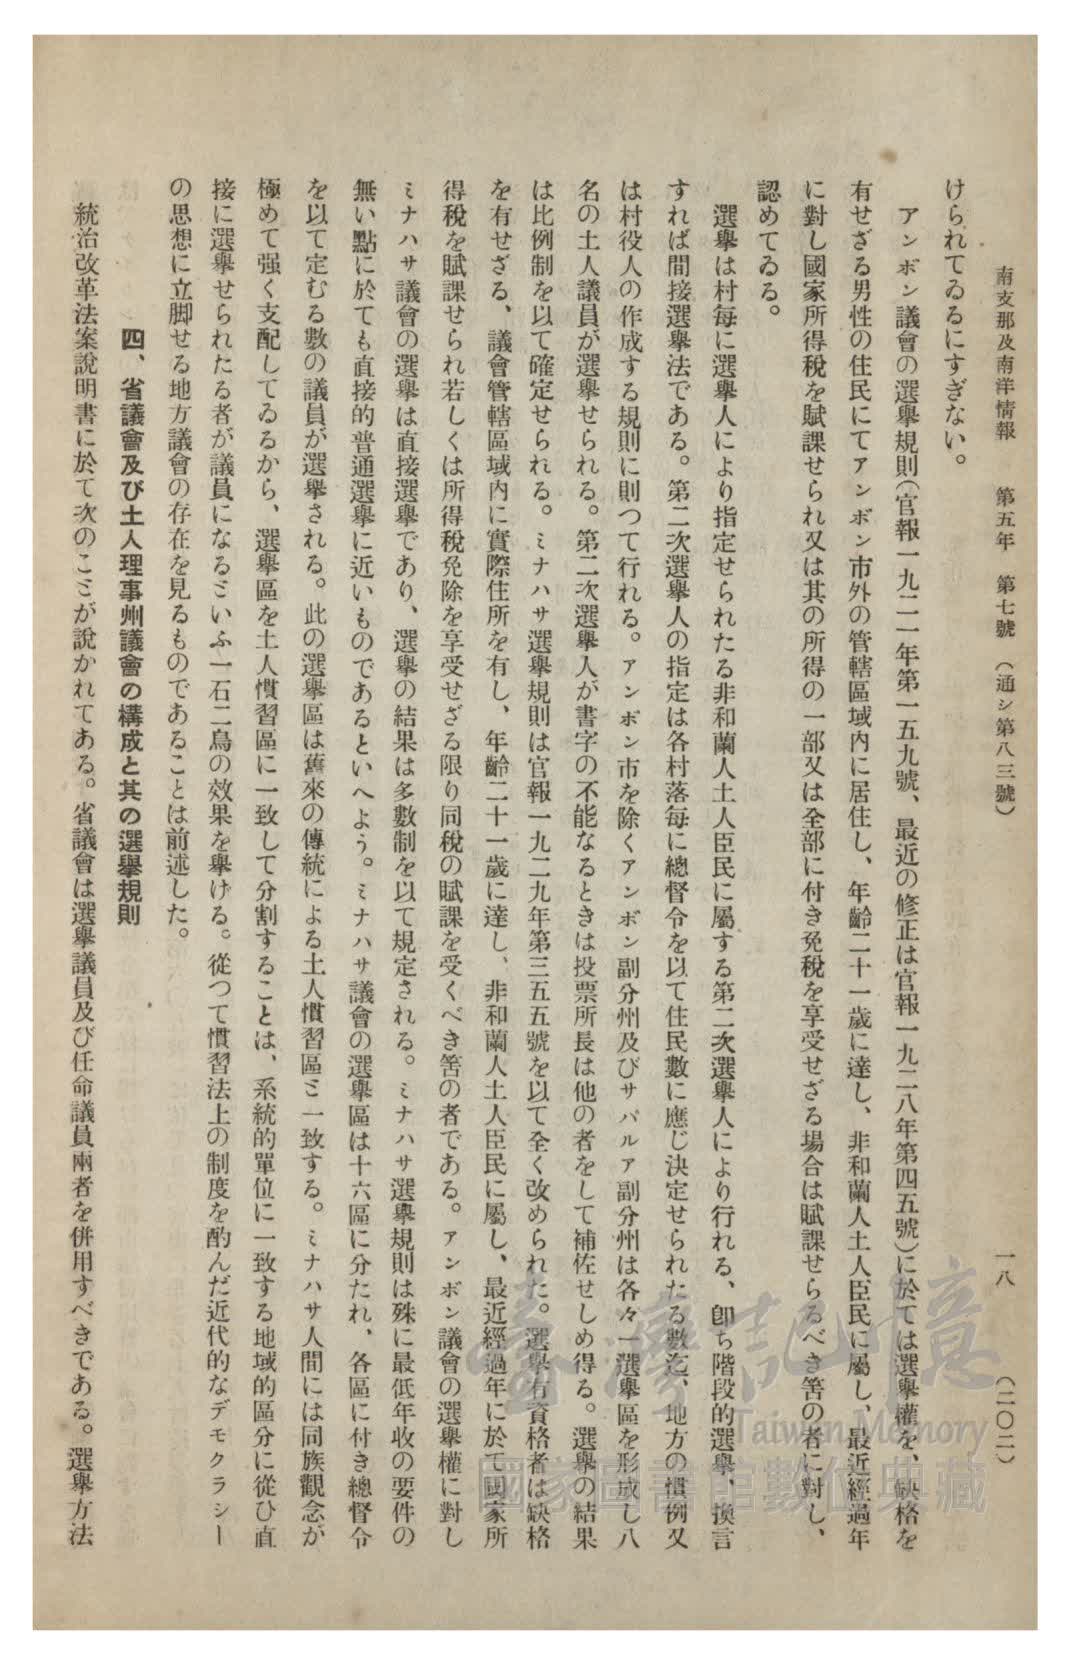 南支那及南洋情報　第五年　第七號　（通シ第八三號）　一八　（二〇二）
けられてゐるにすぎない。
アンボン議會の選擧規則（官報一九二一年第一五九號、最近の修正は官報一九二八年第四五號）に於ては選擧權を、缺格を
有せざる男性の住民にてアンボン市外の管轄區域內に居住し、年齡二十一歲に達し、非和蘭人土人臣民に屬し、最近經過年
に對し國家所得稅を賦課せられ又は其の所得の一部又は全部に付き免稅を享受せざる場合は賦課せらるべき筈の者に對し、
認めてゐる。
選擧は村每に選擧人により指定せられたる非和蘭人土人臣民に屬する第二次選擧人により行れる、卽ち階段的選擧、換言
すれば間接選擧法である。第二次選擧人の指定は各村落每に總督令を以て住民數に應じ決定せられたる數迄、地方の慣例又
は村役人の作成する規則に則つて行れる。アンボン市を除くアンボン副分州及びサパルア副分州は各々一選擧區を形成し八
名の土人議員が選擧せられる。第二次選擧人が書字の不能なるときは投票所長は他の者をして補佐せしめ得る。選擧の結果
は比例制を以て確定せられる。ミナハサ選擧規則は官報一九二九年第三五五號を以て全く改められた。選擧有資格者は缺格
を有せざる、議會管轄區域內に實際住所を有し、年齡二十一歲に達し、非和蘭人土人臣民に屬し、最近經過年に於て國家所
得稅を賦課せられ若しくは所得稅免除を享受せざる限り同稅の賦課を受くべき筈の者である。アンボン議會の選擧權に對し
ミナハサ議會の選擧は直接選擧であり、選擧の結果は多數制を以て規定される。ミナハサ選擧規則は殊に最低年收の要件の
無い點に於ても直接的普通選擧に近いものであるといへよう。ミナハサ議會の選擧區は十六區に分たれ、各區に付き總督令
を以て定むる數の議員が選擧される。此の選擧區は舊來の傳統による土人慣習區と一致する。ミナハサ人間には同族觀念が
極めて强く支配してゐるから、選擧區を土人慣習區に一致して分割することは、系統的單位に一致する地域的區分に從ひ直
接に選擧せられたる者が議員になるといふ一石二鳥の效果を擧ける。從つて慣習法上の制度を酌んだ近代的なデモクラシー
の思想に立脚せる地方議會の存在を見るものであることは前述した。
四、省議會及び土人理事州議會の構成と其の選擧規則
統治改革法案說明書に於て次のことが說かれてある。省議會は選擧議員及び任命議員兩者を併用すべきである。選擧方法
臺灣記憶
Taiwan Memory
國家圖書館數位典藏